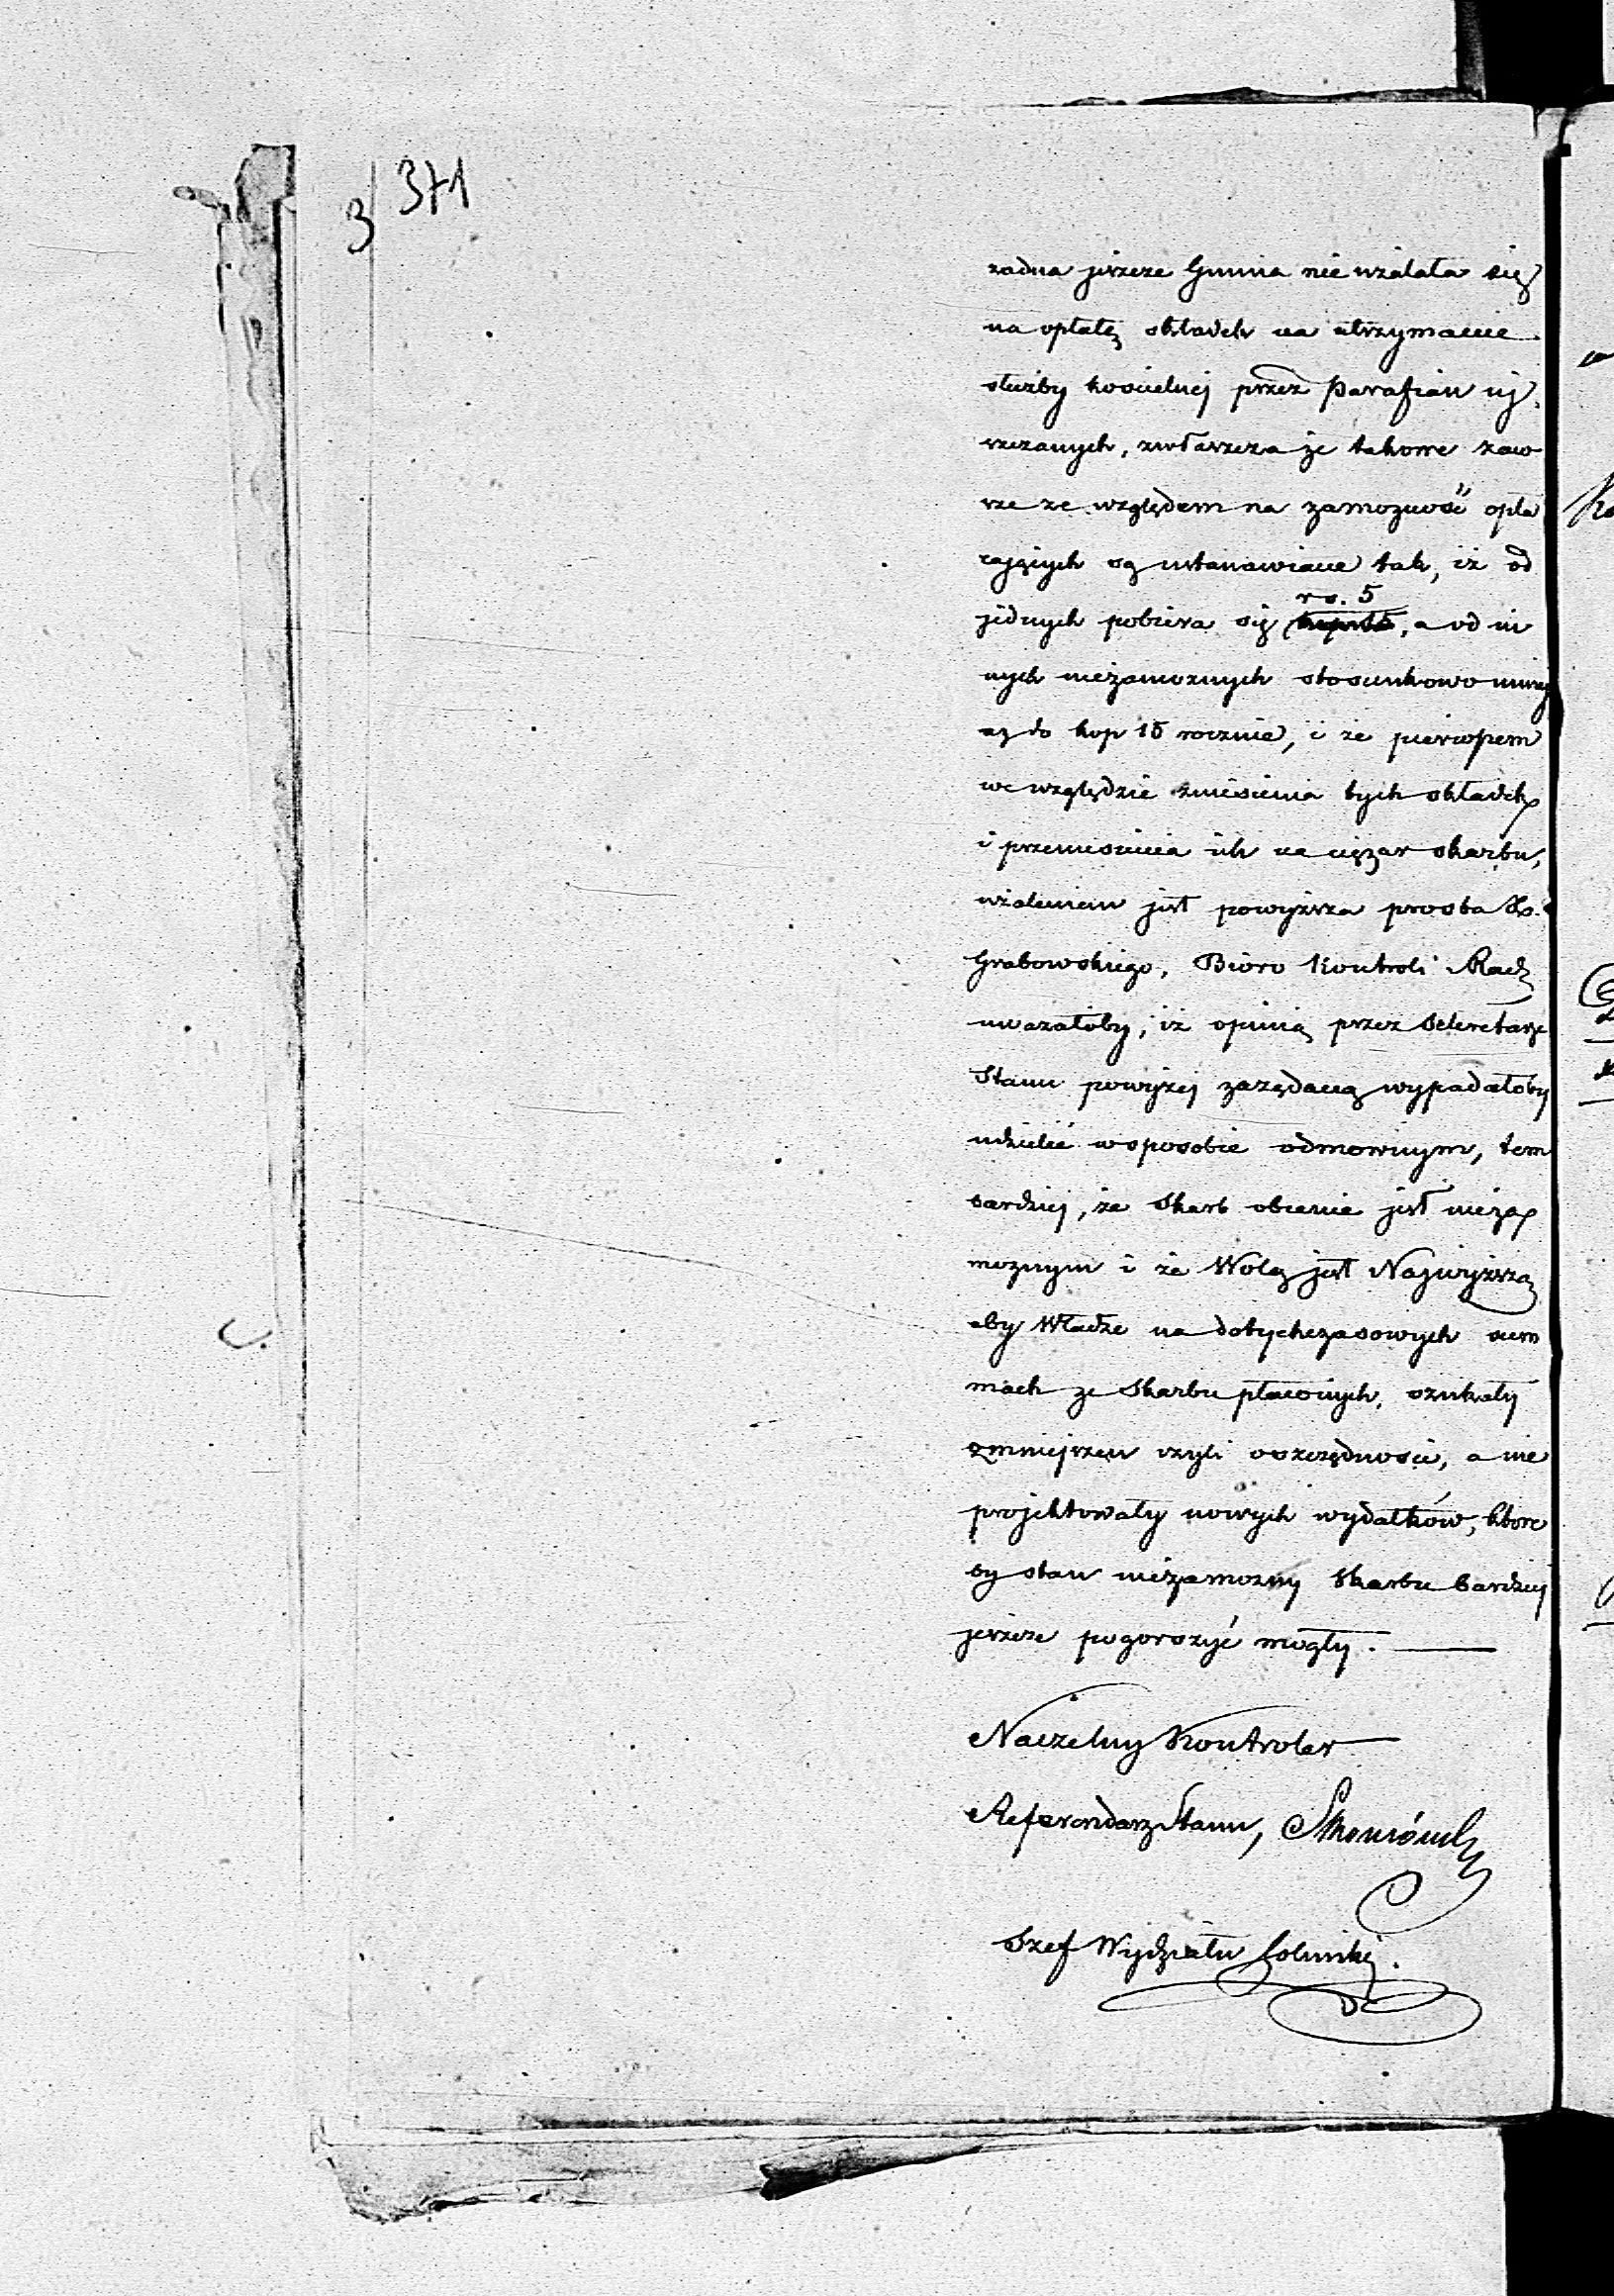 371
3
żadna jeszcze Gmina nie użalała się
na opłatę składek na utrzymanie
służby kościelnej przez Parafian uj
szczanych, zwłaszcza że takowe zaw
sze ze względem na zamożność opła
cających są ustanawiane tak, iż od
jednych pobiera się rs. 5, a od in
nych niezamożnych stosunkowo mniej
aż do kop 15 rocznie, i że pierwszem
we względzie zniesienia tych składek
i przeniesienia ich na ciężar skarbu,
użaleniem jest powyższa prosba X.
Grabowskiego, Bióro Kontroli Rząd
uważałoby, iż opinią przez Sekretarza
Stanu powyżej zażądaną wypadałoby
udzielić w sposobie odmownym, tem
bardziej, że Skarb obecnie jest nieza
możnym i że Wolą jest Najwyższą
aby Władze na dotychczasowych sum
mach ze Skarbu płaconych, szukały
zmniejszeń czyli oszczędności, a nie
projektowały nowych wydatków, które
by stan niezamożny Skarbu bardziej
jeszcze pogorszyć mogły.
Naczelny Kontroler
Referendarz Stanu,
Szef Wydziału